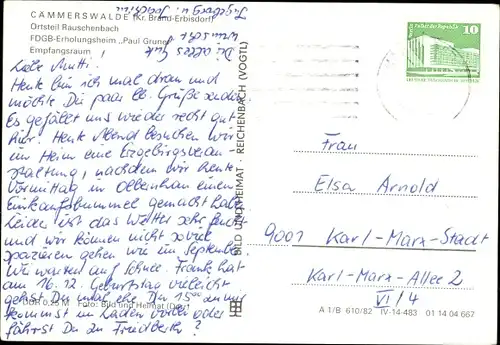 CÄMMERSWALDE (Kr. Brand-Erbisdorf)
Ortsteil Rauschenbach
FDGB-Erholungsheim „Paul Gruner"
Empfangsraum
Liebe Mutti!
Heute bin ich mal dran und
möchte Dir paar lb. Grüße senden
Es gefällt uns wieder recht gut
hier. Heute Abend besuchen wir
im Heim eine Erzgebirgsveran-
staltung, nachdem wir heute
Vormittag in Olbernhau einen
Einkaufsbummel gemacht haben
Leider ist das Wetter sehr feucht
und wir können nicht soviel
spazieren gehen wie im September.
Wir warten auf Schnee. Frank hat
am 16.12. Geburtstag vielleicht
gehst Du mal ehe Du 15⁰⁰ an uns
kommst im Laden vorbei oder
fährst Du zu Friedberth?
Dir alles Gute
wünscht
Ingeborg u. Joachim
DDR 0,25 M Foto: Bild und Heimat (Dal)
BILD UND HEIMAT · REICHENBACH (VOGTL)
10
Frau
Elsa Arnold
9001 Karl-Marx-Stadt
Karl-Marx-Allee 2
VI/4
A 1/B 610/82 IV-14-483 01 14 04 667